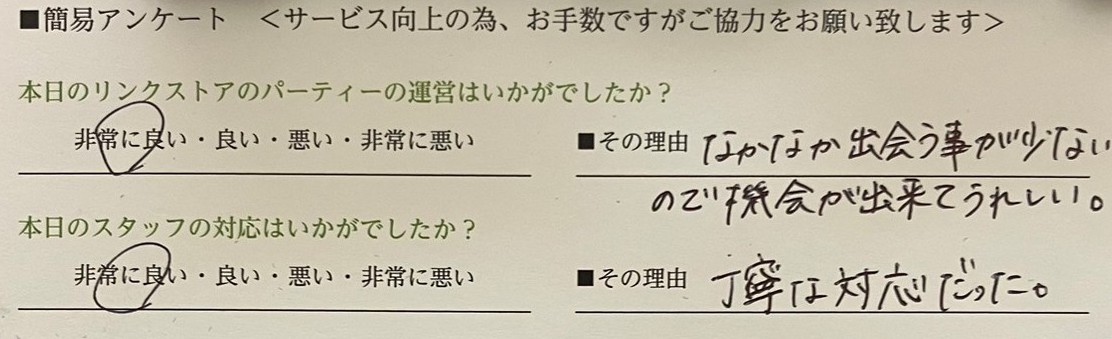 ■簡易アンケート ＜サービス向上の為、お手数ですがご協力をお願い致します＞
本日のリンクストアのパーティーの運営はいかがでしたか？
非常に良い・良い・悪い・非常に悪い ■その理由 なかなか出会う事が少ない
ので機会が出来てうれしい。
本日のスタッフの対応はいかがでしたか？
非常に良い・良い・悪い・非常に悪い ■その理由 丁寧な対応だった。